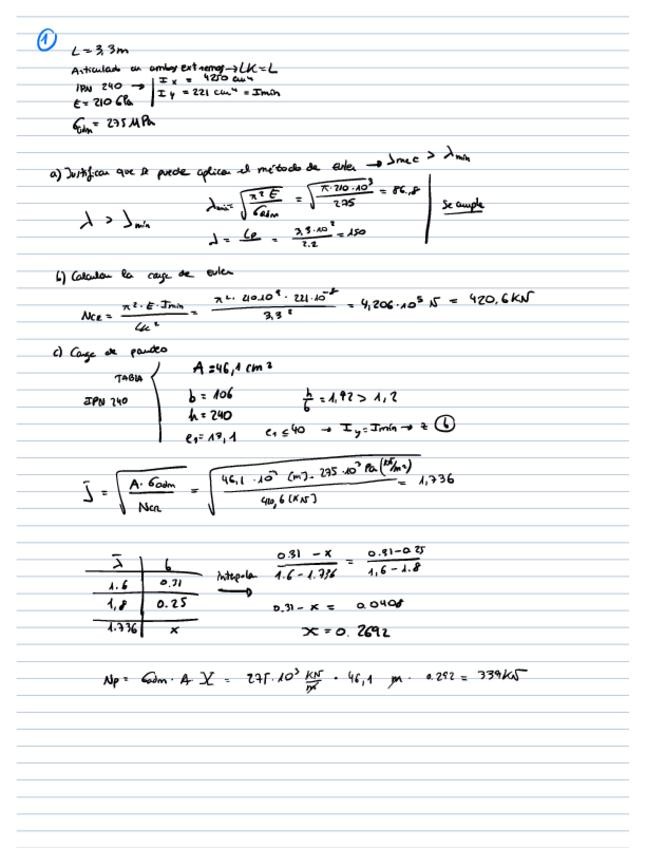 1
L = 3,3m
Articulado en ambos extremos → LK = L
IPN 240 → | Ix = 4250 cm⁴
E = 210 GPa | Iy = 221 cm⁴ = Imin
σadm = 275 MPa
a) Justificar que se puede aplicar el método de euler → λmec > λmin
λ > λmin
λmin = √(π² E / σadm) = √(π · 210 · 10³ / 275) = 86,8
λ = Lp / = 3,3 · 10² / 2.2 = 150
Se cumple
b) Calcular la carga de euler
NCR = π² · E · Imin / LK² = π² · 210·10⁹ · 221·10⁻⁸ / 3,3² = 4,206 · 10⁵ N = 420,6 KN
c) Carga de pandeo
TABLA
IPN 240
A = 46,1 cm²
b = 106
h/b = 1,92 > 1,2
h = 240
e1 = 13,1 e1 ≤ 40 → Iy = Imin → z (b)
λ̄ = √(A · σadm / NCR) = √(46,1 · 10⁻ (m) · 275 · 10³ Pa (KN/m²) / 420,6 (KN)) = 1,736
λ̄ | b
1.6 | 0.31
1,8 | 0.25
1.736 | x
Interpola →
0.31 - x / 1.6 - 1.736 = 0.31-0.25 / 1,6 - 1.8
0.31 - x = 0.0408
x = 0.2692
Np = σadm · A χ = 275 · 10³ KN/m · 46,1 m · 0.292 = 339 KN